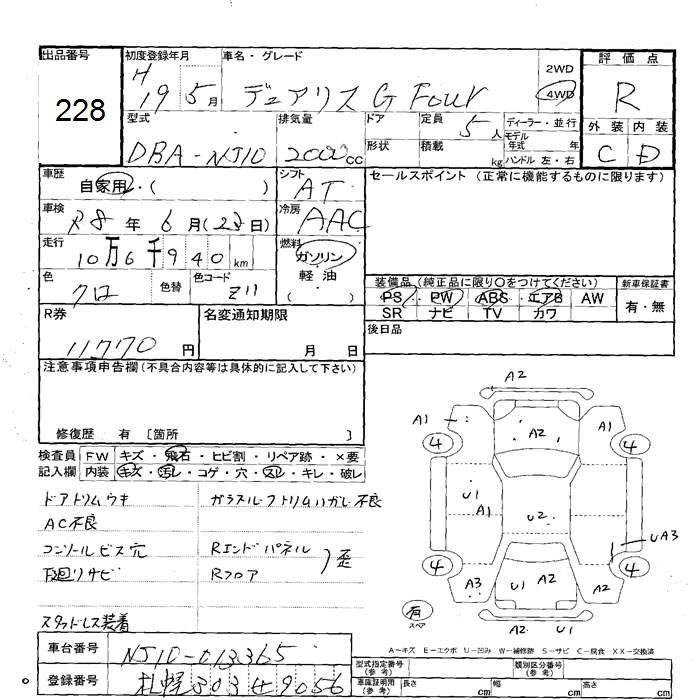 出品番号
228
初度登録年月
H 19 5月
車名・グレード
デュアリス G Four
2WD
4WD
評価点
R
型式
DBA-NJ10
排気量
2000cc
ドア
形状
定員
5人
積載
kg
ディーラー・並行
モデル年式 年
ハンドル 左・右
外装 内装
C D
車歴
自家用・( )
シフト
AT
車検
R8年 6月(23日)
冷房
AAC
走行
10万6千940km
燃料
ガソリン
軽油
( )
色
クロ
色替
色コード
Z11
セールスポイント (正常に機能するものに限ります)
装備品 (純正品に限り○をつけてください)
PS・PW・ABS・エアB・AW
SR・ナビ・TV・カワ
新車保証書
有・無
後日品
R券
11770円
名変通知期限
月 日
注意事項申告欄(不具合内容等は具体的に記入して下さい)
修復歴 有 〔箇所 〕
検査員 FW キズ・飛石・ヒビ割・リペア跡・×要
記入欄 内装 キズ・汚レ・コゲ・穴・スレ・キレ・破レ
ドアトリムウキ
ガラスルーフトリムハガレ不良
AC不良
コンソールビス穴
Rエンドパネル
歪
下廻リサビ
Rフロア
スタッドレス装着
A2
A1
A2
A1
4
4
U1
A1
U2
UA3
4
4
A3
U1
A2
A2
有
スペア
A2 U1
A-キズ E-エクボ U-凹み W-補修跡 S-サビ C-腐食 XX-交換済
車台番号
NJ10-013365
登録番号
札幌303
9056
型式指定番号
(参考)
類別区分番号
(参考)
車庫証明用
(参考)
長さ cm
幅 cm
高さ cm